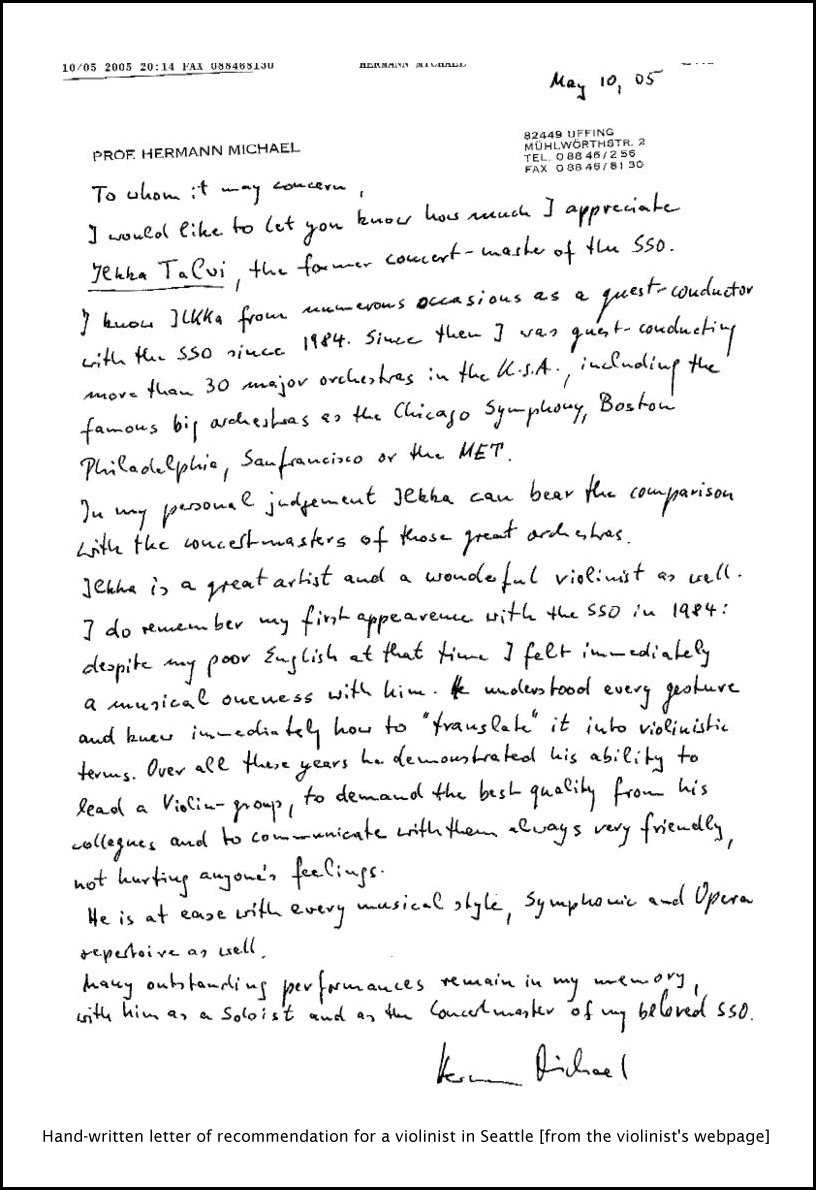 10/05 2005 20:14 FAX 088468130 HERMANN MICHAEL
May 10, 05
PROF. HERMANN MICHAEL
82449 UFFING
MÜHLWÖRTHSTR. 2
TEL. 0 88 46 / 2 56
FAX 0 88 46 / 81 30
To whom it may concern,
I would like to let you know how much I appreciate
Ilkka Talvi, the former concert-master of the SSO.
I know Ilkka from numerous occasions as a guest-conductor
with the SSO since 1984. Since then I was guest-conducting
more than 30 major orchestras in the U.S.A., including the
famous big orchestras as the Chicago Symphony, Boston
Philadelphia, Sanfrancisco or the MET.
In my personal judgement Ilkka can bear the comparison
with the concertmasters of those great orchestras.
Ilkka is a great artist and a wonderful violinist as well.
I do remember my first appearence with the SSO in 1984:
despite my poor English at that time I felt immediately
a musical oneness with him. He understood every gesture
and knew immediately how to "translate" it into violinistic
terms. Over all these years he demonstrated his ability to
lead a Violin-group, to demand the best quality from his
collegues and to communicate with them always very friendly,
not hurting anyone's feelings.
He is at ease with every musical style, Symphonic and Opera
repertoire as well.
Many outstanding performances remain in my memory,
with him as a Soloist and as the Concertmaster of my beloved SSO.
Hermann Michael
Hand-written letter of recommendation for a violinist in Seattle [from the violinist's webpage]